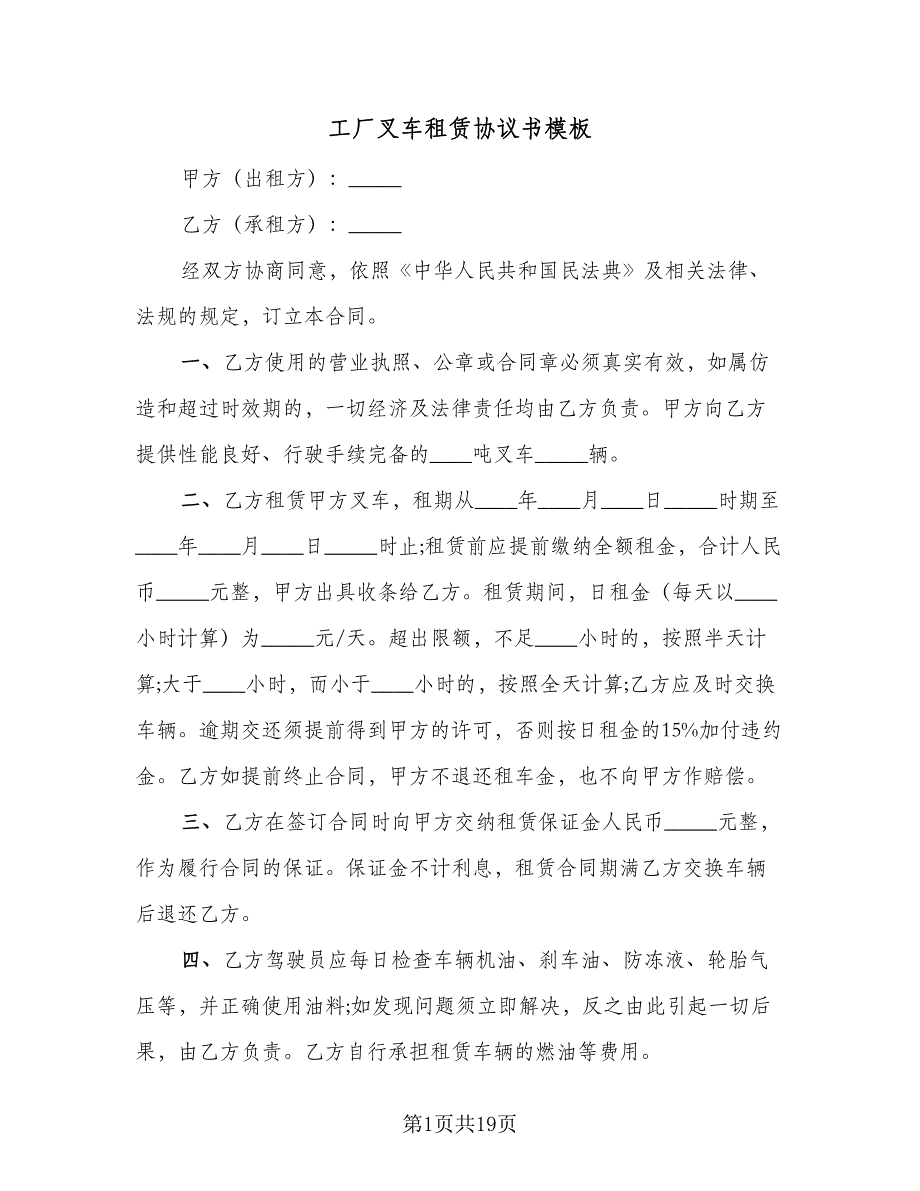 工厂叉车租赁协议书模板
甲方（出租方）：_____
乙方（承租方）：_____
经双方协商同意，依照《中华人民共和国民法典》及相关法律、
法规的规定，订立本合同。
一、乙方使用的营业执照、公章或合同章必须真实有效，如属仿
造和超过时效期的，一切经济及法律责任均由乙方负责。甲方向乙方
提供性能良好、行驶手续完备的____吨叉车_____辆。
二、乙方租赁甲方叉车，租期从____年____月____日_____时期至
____年____月____日_____时止;租赁前应提前缴纳全额租金，合计人民
币_____元整，甲方出具收条给乙方。租赁期间，日租金（每天以____
小时计算）为_____元/天。超出限额，不足____小时的，按照半天计
算;大于____小时，而小于____小时的，按照全天计算;乙方应及时交换
车辆。逾期交还须提前得到甲方的许可，否则按日租金的15%加付违约
金。乙方如提前终止合同，甲方不退还租车金，也不向甲方作赔偿。
三、乙方在签订合同时向甲方交纳租赁保证金人民币_____元整，
作为履行合同的保证。保证金不计利息，租赁合同期满乙方交换车辆
后退还乙方。
四、乙方驾驶员应每日检查车辆机油、刹车油、防冻液、轮胎气
压等，并正确使用油料;如发现问题须立即解决，反之由此引起一切后
果，由乙方负责。乙方自行承担租赁车辆的燃油等费用。
第1页共19页